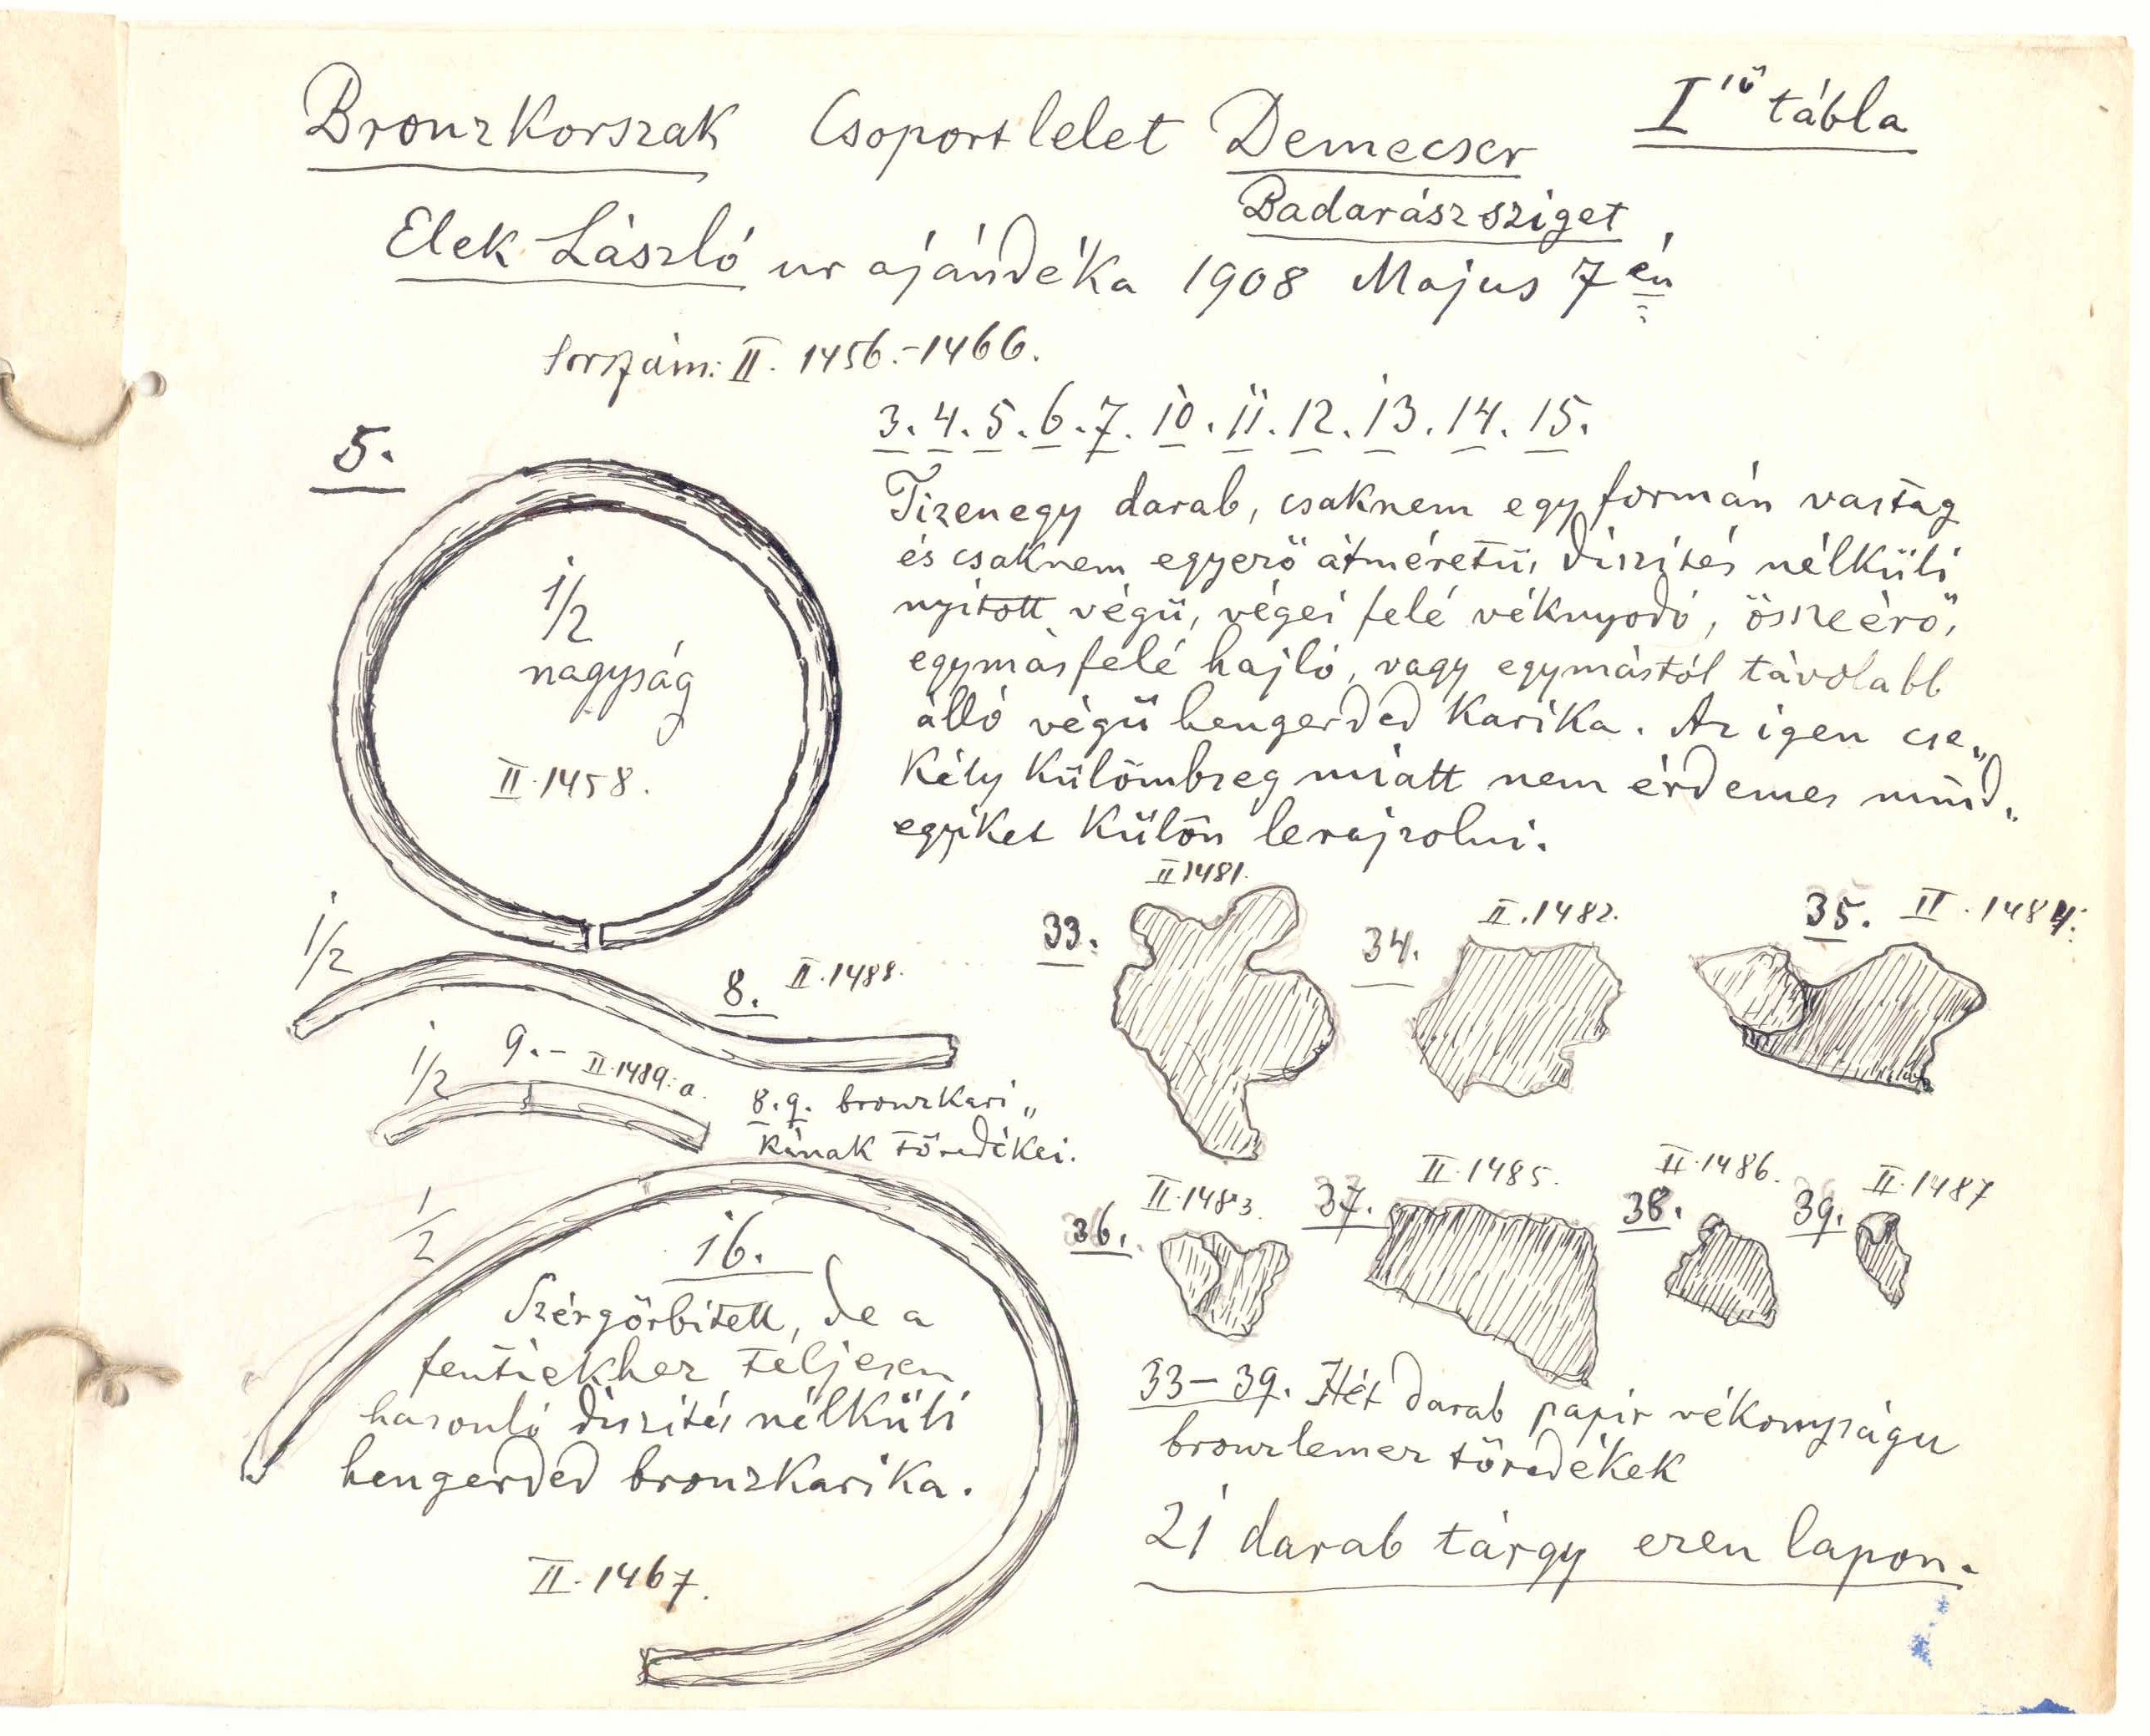 Bronzkorszak Csoportlelet Demecser
I ső tábla
Badarászsziget
Elek László ur ajándéka 1908 Majus 7 én
sorszám: II. 1456.-1466.
3. 4. 5. 6. 7. 10. 11. 12. 13. 14. 15.
5.
Tizenegy darab, csaknem egy formán vastag
és csaknem egyező átméretü, diszités nélküli
nyitott végü, végei felé véknyodó, összeérő,
egymásfelé hajló, vagy egymástól távolabb
álló végü hengerded karika. Az igen cse„
kély külömbzeg miatt nem érdemes mind„
egyiket külön lerajzolni.
1/2
nagyság
II.1458.
1/2
8. II.1488.
1/2
9.- II.1489.a.
8.9. bronzkari„
kának töredékei.
II 1481.
33.
II.1482.
34.
35. II.1484.
II.1483.
36.
II.1485.
37.
II.1486.
38.
II.1487
39.
1/2
16.
Szérgörbitett, de a
fentiekhez teljesen
hasonló diszités nélküli
hengerded bronzkarika.
II.1467.
33-39. Hét darab papir vékonyságu
bronzlemez töredékek
21 darab tárgy ezen lapon.